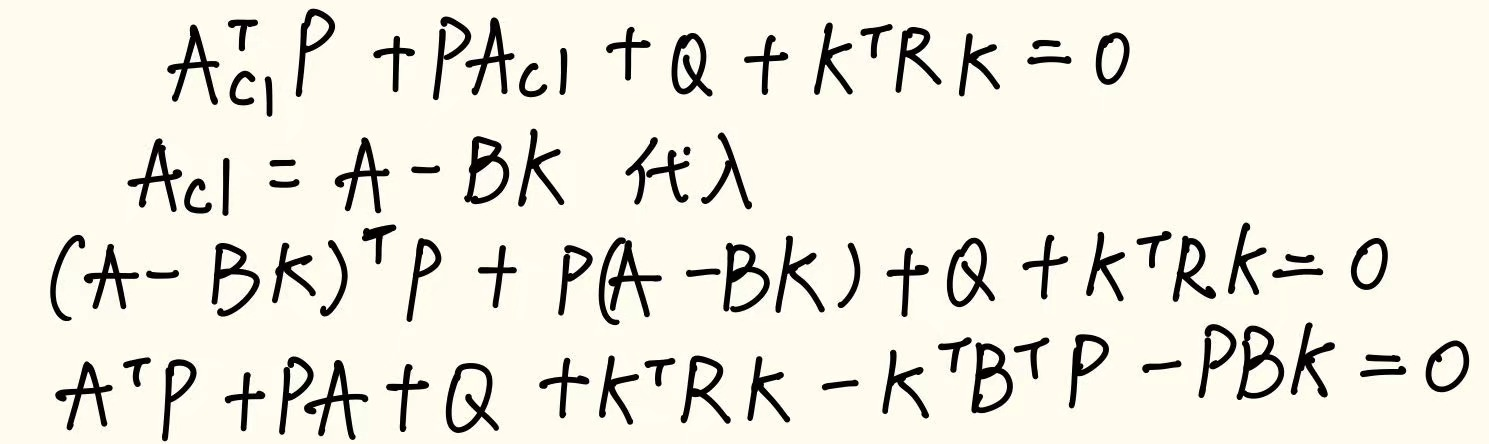 A_{cl}^T P + PA_{cl} + Q + K^T R K = 0
A_{cl} = A - BK 代入
(A - BK)^T P + P(A - BK) + Q + K^T R K = 0
A^T P + PA + Q + K^T R K - K^T B^T P - PBK = 0